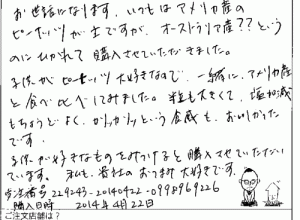 お世話になります。いつもはアメリカ産の
ピーナッツが主ですが、オーストラリア産??という
のにひかれて購入させていただきました。
子供がピーナッツ大好きなので、一緒に、アメリカ産
と食べ比べてみました。粒も大きくて、塩加減
もちょうどよく、かリッかリッという食感も、おいしかった
です。
子供が好きなものをみつけると購入させていただいて
います。私も、貴社のおつまみ大好きです。
ご注文番号 229243-20140422-0998969226
購入日時 2014年4月22日
ご注文店舗は?